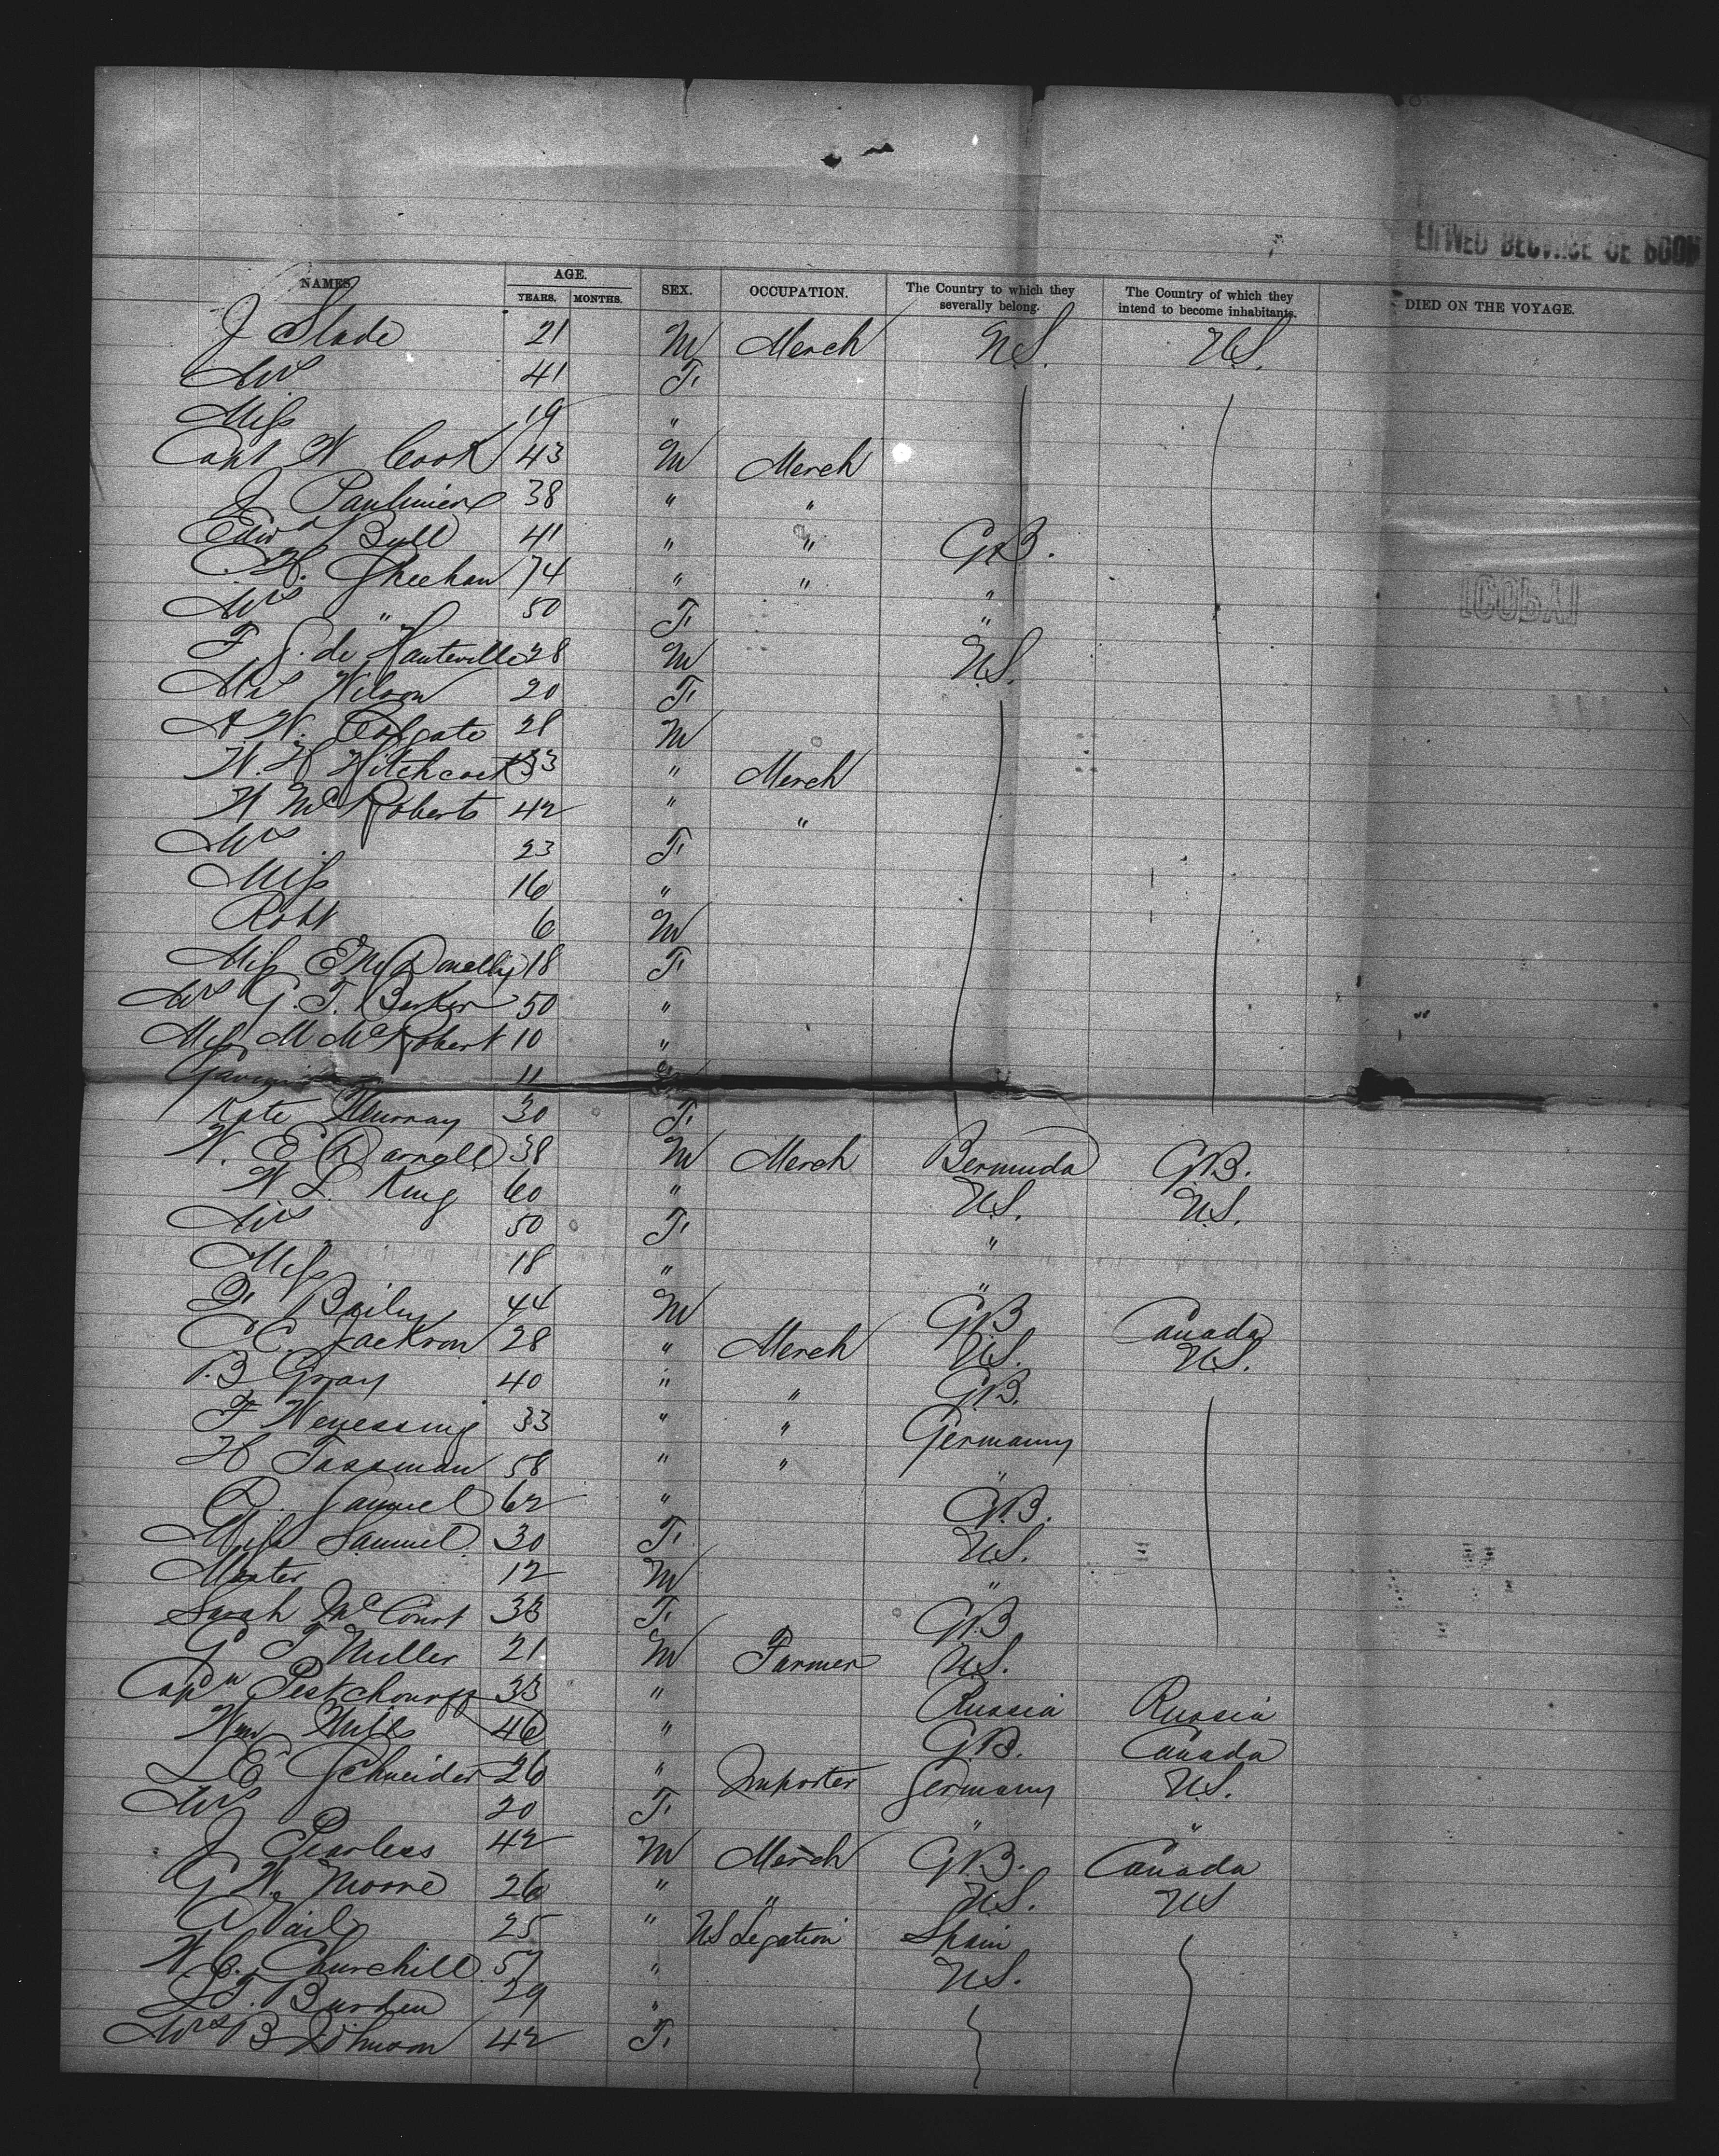 NAMES. AGE. YEARS. MONTHS. SEX. OCCUPATION. The Country to which they severally belong. The Country of which they intend to become inhabitants. DIED ON THE VOYAGE.
J Slade 21 M Merch U.S. U.S.
Mrs 41 F.
Miss 19 "
Capt W Cook 43 M Merch
J Paulmier 38 " "
Edwd Bull 41 " " G.B.
H. Sheehan 74 " " "
Mrs " 50 F. "
F G. de Hauteville 28 M U.S.
Mrs Wilson 20 F.
A W. Colgate 28 M
W. H Hitchcock 33 " Merch
H McRoberts 42 " "
Mrs 23 F.
Miss 16 "
Robt 6 M
Miss E McDonelly 18 F.
Mrs G. T. Barker 50 "
Miss M McRobert 10 "
11
Kate Murray 30 F.
W. E Darrell 38 M Merch Bermuda G.B.
W L. King 60 " U.S. U.S.
Mrs 50 F. "
Miss 18 " "
Baily 44 M G.B Canada
C C. Jackson 28 " Merch U.S. U.S.
B Gray 40 " " G.B.
F 33 " " Germany
H Tassman 58 " " "
Samuel 62 " G.B.
Miss Samuel 30 F. U.S.
Master 12 M "
Sarah McCourt 33 F. G.B
G T Miller 21 M Farmer U.S.
Capn Pestchouroff 33 " Russia Russia
Wm Mills 46 " G.B. Canada
L E Schneider 26 " Importer Germany U.S.
Mrs 20 F. " "
J Pearless 42 M Merch G.B. Canada
G W. Moore 26 " " U.S. US
A Vail 25 " US Legation Spain
W C. Churchill 57 " U.S.
L T. Burden 29 "
Mrs B Johnson 42 F.